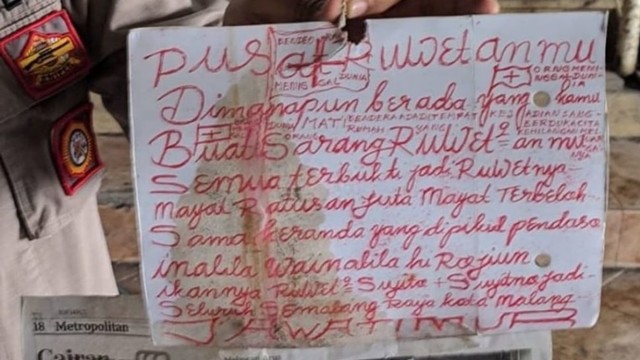 PUSAT RUWETanmu
BENDERA
MENINGGAL DUNIA
ORANG MENINGGAL DUNIA
Dimanapun berada yang kamu
MATI BENDERA ADA DITEMPAT KEJADIAN SANG
ORANG RUMAH YANG BERDUKACITA
KEHILANGAN
Buat Sarang RUWet2an mu
Semua terbukti jadi RuWetnya-
mayat Ratusan Juta Mayat Terbelah-
Sama keranda yang dipikul pendosa
inalila Wainalila hi Rojiun
ikannya RuWet2 Sujito + Sujitno Jadi-
Seluruh Semalang Raya kota malang-
JAWATIMUR
18 Metropolitan
Cairan